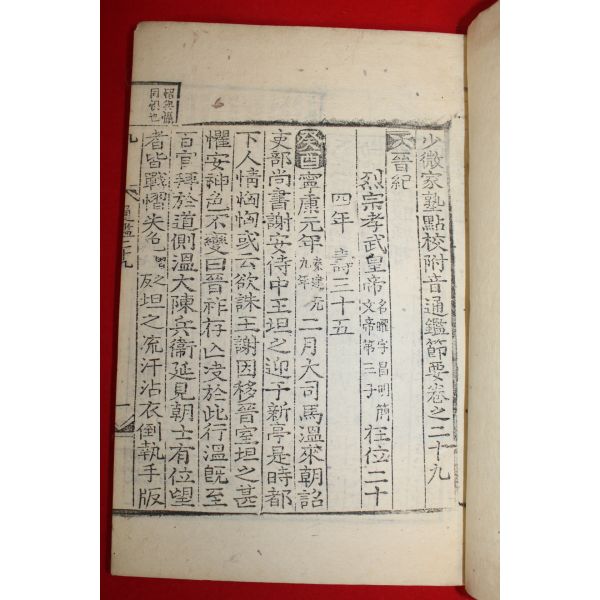 少微家塾點校附音通鑑節要卷之二十九
晉紀
烈宗孝武皇帝名曜字昌明簡文帝第三子在位二十
四年壽三十五
癸酉寧康元年秦建元九年二月大司馬溫來朝詔
吏部尚書謝安侍中王坦之迎于新亭是時都
下人情恟恟或云欲誅王謝因移晉室坦之甚
懼安神色不變曰晉祚存亡决於此行溫旣至
百官拜於道側溫大陳兵衛延見朝士有位望
者皆戰慴失色坦之流汗沾衣倒執手版
通鑑二十九
九